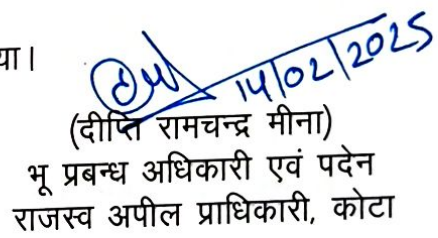 या।
14/02/2025
(दीप्ति रामचन्द्र मीना)
भू प्रबन्ध अधिकारी एवं पदेन
राजस्व अपील प्राधिकारी, कोटा